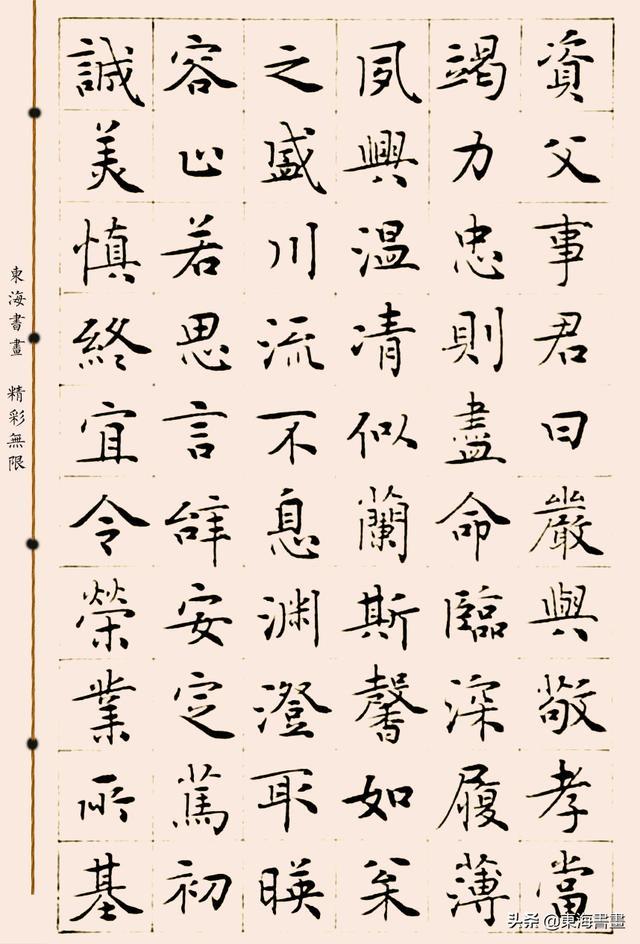 資父事君曰嚴與敬孝當
竭力忠則盡命臨深履薄
夙興温凊似蘭斯馨如枀
之盛川流不息渊澄取暎
容止若思言辞安定篤初
誠美慎終宜令榮業所基
東海書畫 精彩無限
头条 @東海書畫